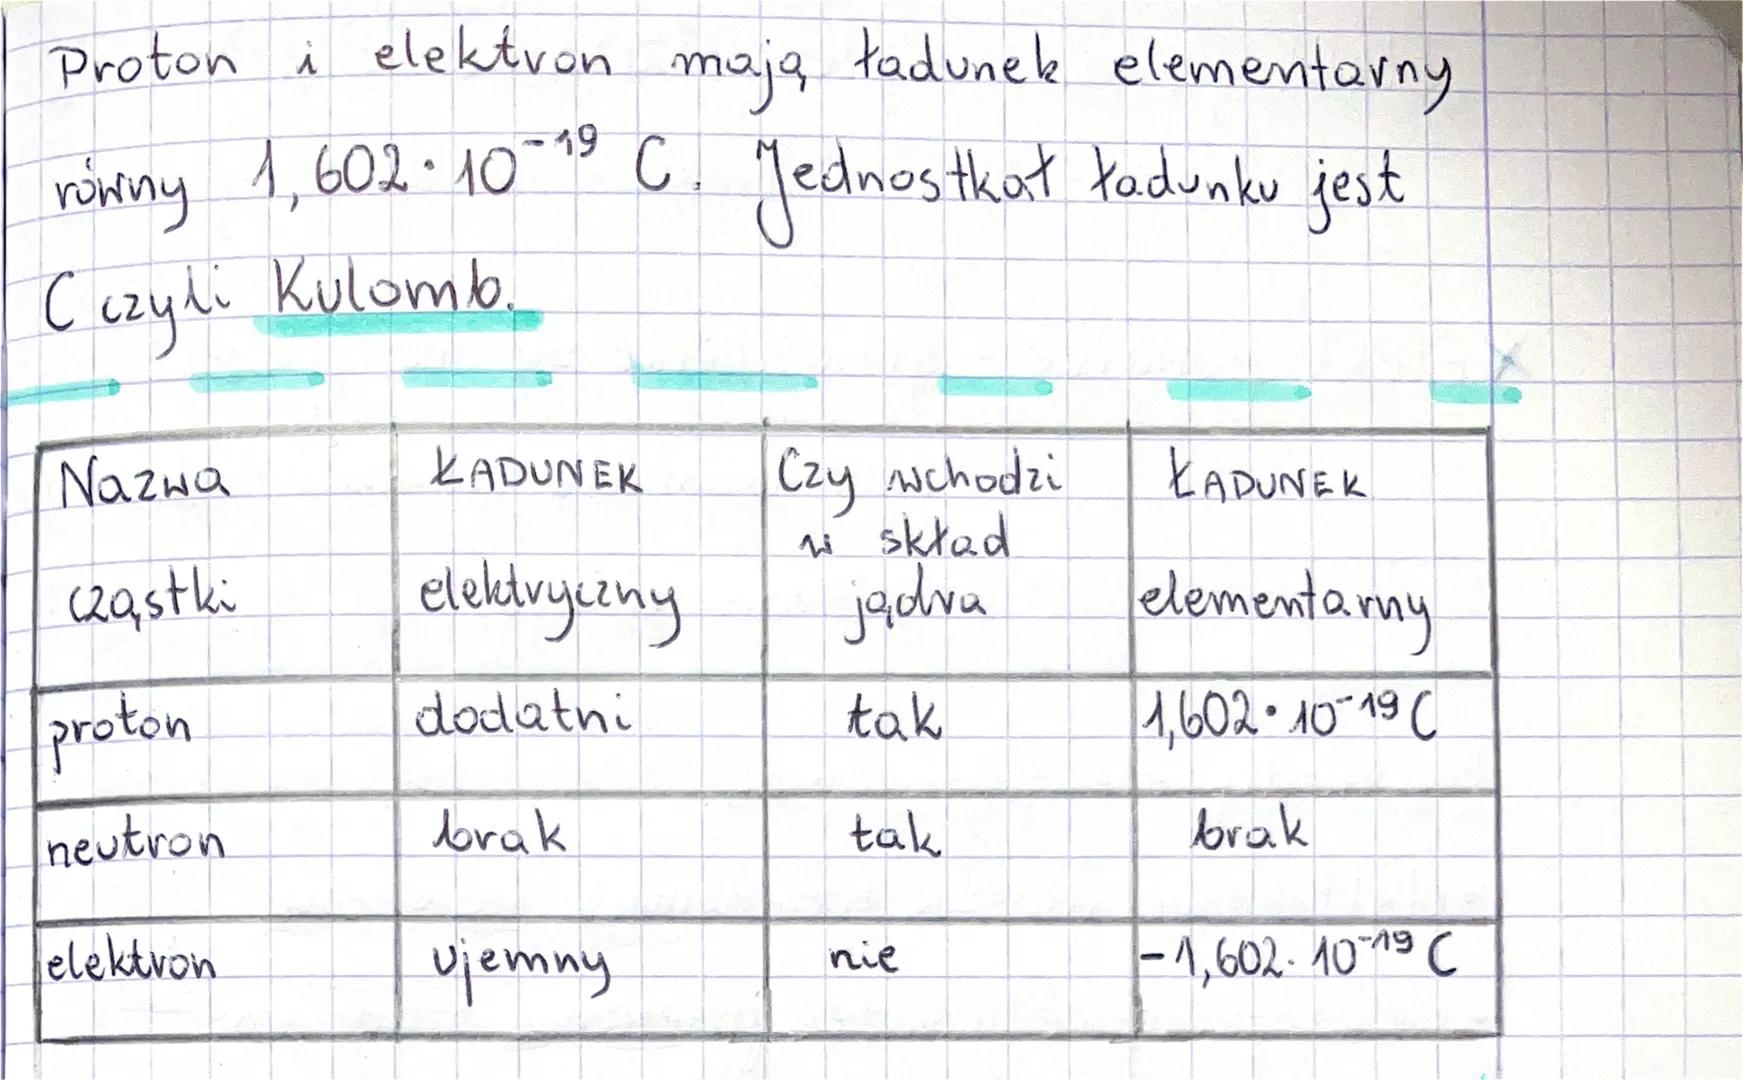 Proton i elektron mają ładunek elementarny
równy 1,602·10⁻¹⁹ C. Jednostkat ładunku jest
C czyli Kulomb.
Nazwa cząstki | ŁADUNEK elektryczny | Czy wchodzi w skład jądra | ŁADUNEK elementarny
proton | dodatni | tak | 1,602·10⁻¹⁹ C
neutron | brak | tak | brak
elektron | ujemny | nie | -1,602·10⁻¹⁹ C